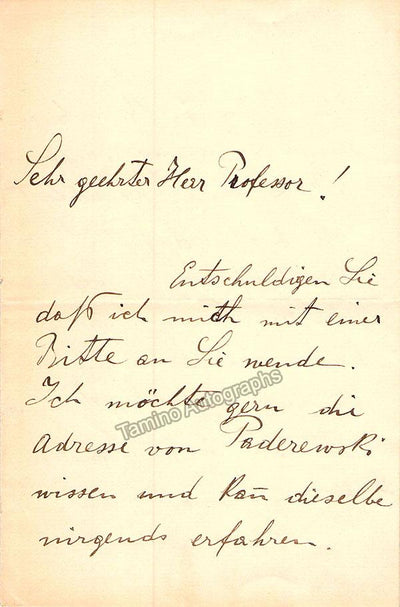 Sehr geehrter Herr Professor!
Entschuldigen Sie
daß ich mich mit einer
Bitte an Sie wende.
Ich möchte gern die
Adresse von Paderewski
wissen und kan̄ dieselbe
nirgends erfahren.
Tamino Autographs